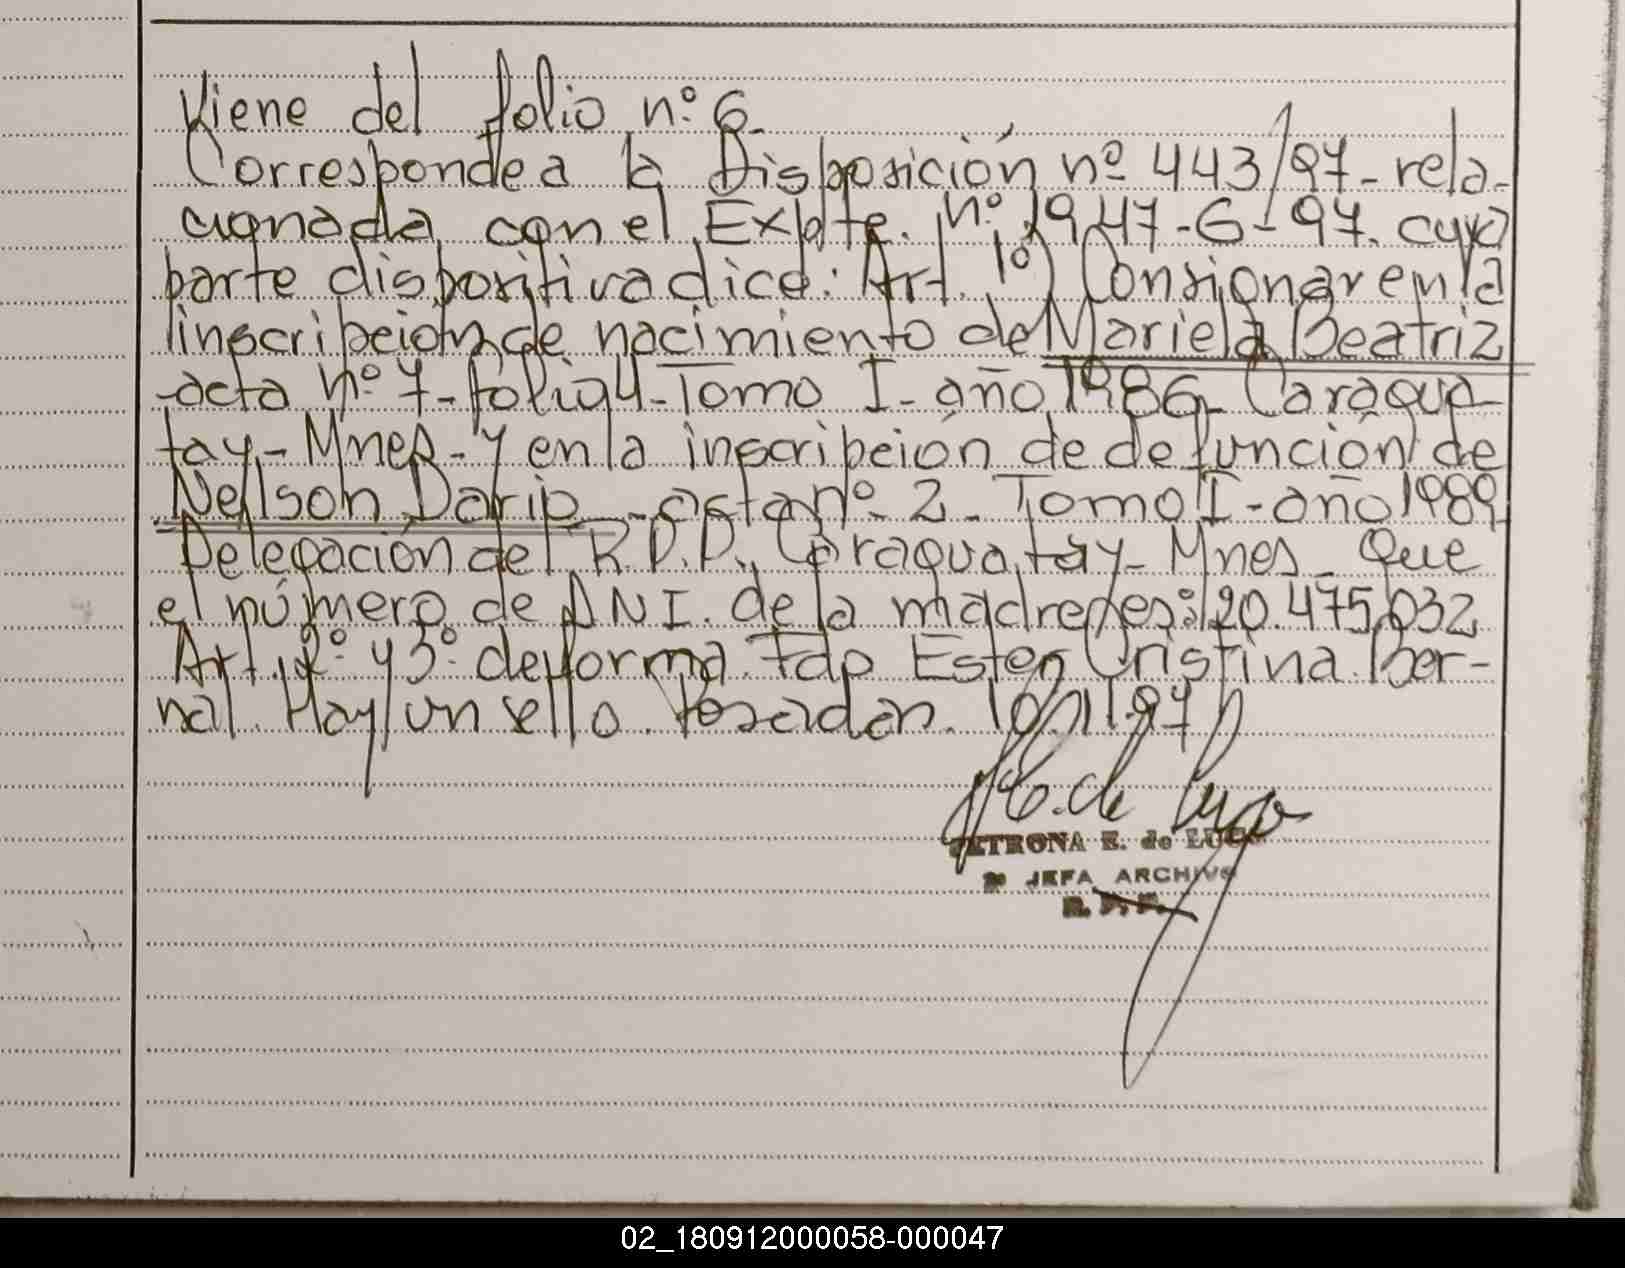 Viene del folio nº 6.
Corresponde a la Disposición nº 443/97- rela-
cionada con el Expte. nº 1947-6-97. cuya
parte dispositiva dice: Art. 1º) Consignar en la
inscripción de nacimiento de Mariela Beatriz
-acta nº 7-folio 4-Tomo I-año 1986-Caragua-
tay-Mnes-y en la inscripción de defunción de
Nellson Dario -acta nº 2-Tomo I-año 1989-
Delegación del R.P.P., Caraguatay-Mnes-Que
el número de DNI. de la madre es: 20.475.032
Art. 2º y 3º de forma. Fdo Ester Cristina Ber-
nal. Hay un sello. Posadas. 10.11.97
E. de Lugo
PETRONA E. de LUGO
2º JEFA ARCHIVO
R. P. P.
02_180912000058-000047